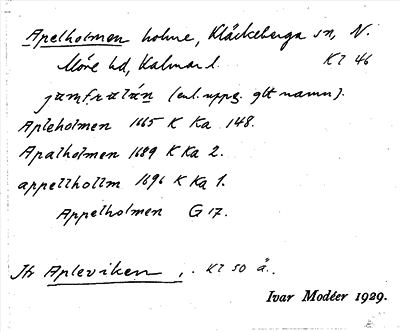 Apelholmen holme, Kläckeberga sn, N.
Möre hd, Kalmar l. Kl 46
jamfralán (enl. uppg. glt namn).
Apleholmen 1665 K Ka 148.
Apalholmen 1689 K Ka 2.
appellhollm 1696 K Ka 1.
Appelholmen G 17.
Jfr Apleviken, . Kl 50 å.
Ivar Modéer 1929.